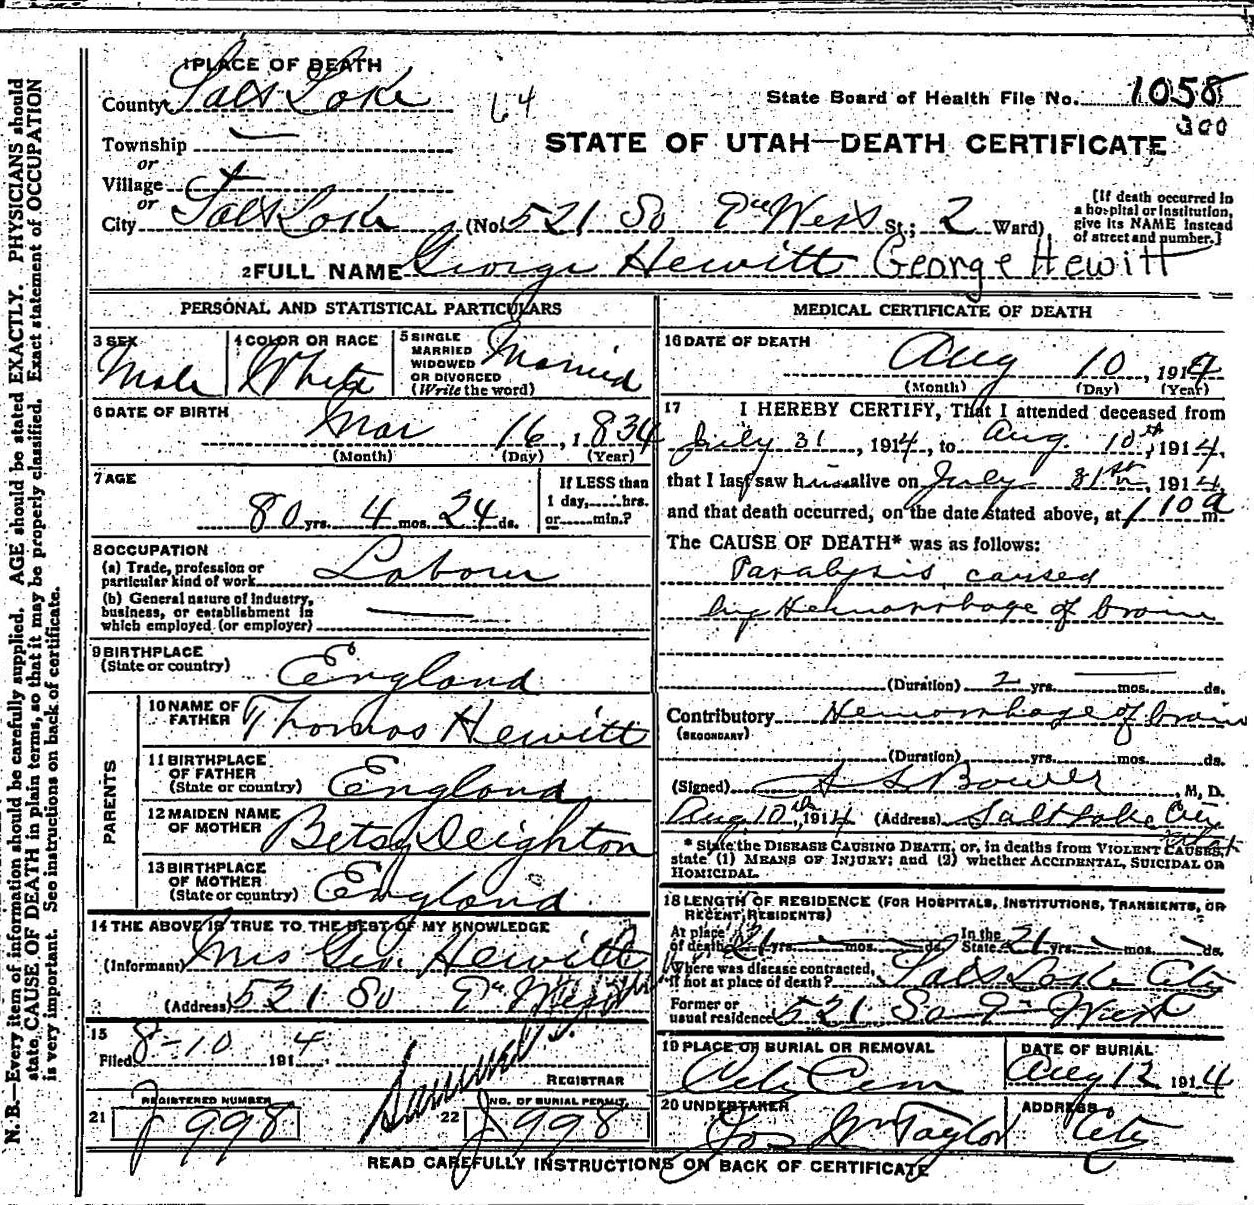 1 PLACE OF DEATH
County Salt Lake
64
State Board of Health File No. 1058
300
STATE OF UTAH—DEATH CERTIFICATE
Township —
or
Village
or
City Salt Lake (No. 521 So West St.; 2 Ward)
[If death occurred in
a hospital or institution,
give its NAME instead
of street and number.]
2 FULL NAME George Hewitt George Hewitt
PERSONAL AND STATISTICAL PARTICULARS
3 SEX
Male
4 COLOR OR RACE
White
5 SINGLE
MARRIED
WIDOWED
OR DIVORCED
(Write the word)
Married
6 DATE OF BIRTH
Mar 16, 1834
(Month) (Day) (Year)
7 AGE
80 yrs. 4 mos. 24 ds.
If LESS than
1 day, hrs.
or min.?
8 OCCUPATION
(a) Trade, profession or
particular kind of work Labour
(b) General nature of industry,
business, or establishment in
which employed (or employer) —
9 BIRTHPLACE
(State or country) England
PARENTS
10 NAME OF
FATHER Thomas Hewitt
11 BIRTHPLACE
OF FATHER
(State or country) England
12 MAIDEN NAME
OF MOTHER Betsy Deighton
13 BIRTHPLACE
OF MOTHER
(State or country) England
14 THE ABOVE IS TRUE TO THE BEST OF MY KNOWLEDGE
(Informant) Mrs Geo. Hewitt
(Address) 521 So West
15
Filed 8-10 1914
REGISTRAR
21 REGISTERED NUMBER
J 998
22 NO. OF BURIAL PERMIT
J 998
MEDICAL CERTIFICATE OF DEATH
16 DATE OF DEATH
Aug 10, 1914
(Month) (Day) (Year)
17 I HEREBY CERTIFY, That I attended deceased from
July 31, 1914, to Aug. 10th, 1914,
that I last saw him alive on July 31st, 1914,
and that death occurred, on the date stated above, at 1 10 a m.
The CAUSE OF DEATH* was as follows:
Paralysis caused
by Hemorrhage of brain
(Duration) 2 yrs. — mos. ds.
Contributory Hemorrhage of brain
(SECONDARY)
(Duration) yrs. mos. ds.
(Signed) Bower, M. D.
Aug 10th, 1914 (Address) Salt Lake City
* State the DISEASE CAUSING DEATH; or, in deaths from VIOLENT CAUSES,
state (1) MEANS OF INJURY; and (2) whether ACCIDENTAL, SUICIDAL OR
HOMICIDAL.
18 LENGTH OF RESIDENCE (FOR HOSPITALS, INSTITUTIONS, TRANSIENTS, OR
RECENT RESIDENTS)
At place
of death 21 yrs. — mos. — ds. In the
State 21 yrs. — mos. — ds.
Where was disease contracted,
if not at place of death? Salt Lake City
Former or
usual residence 521 So West
19 PLACE OF BURIAL OR REMOVAL
City Cem
DATE OF BURIAL
Aug 12 1914
20 UNDERTAKER
Jos Wm Taylor
ADDRESS
City
READ CAREFULLY INSTRUCTIONS ON BACK OF CERTIFICATE
N. B.—Every item of information should be carefully supplied. AGE should be stated EXACTLY. PHYSICIANS should
state CAUSE OF DEATH in plain terms, so that it may be properly classified. Exact statement of OCCUPATION
is very important. See instructions on back of certificate.